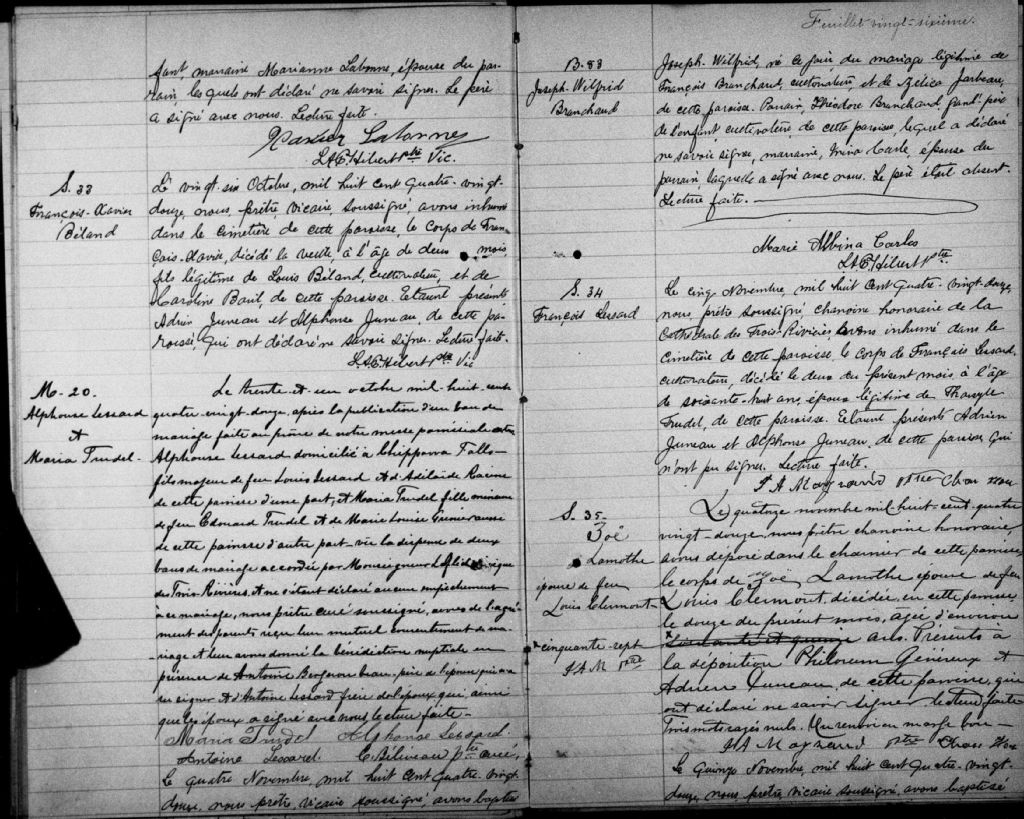 Feuillet vingt-sixième.
sant marraine Marianne Labonne, épouse du par-
rain, lesquels ont déclaré ne savoir signer. Le père
a signé avec nous. Lecture faite.
Xavier Labonne
L.A.E. Hébert ptre Vic.
S. 33
François-Xavier
Béland
Le vingt-six Octobre, mil huit cent quatre-vingt-
douze, nous, prêtre, vicaire, soussigné, avons inhumé
dans le cimetière de cette paroisse, le corps de Fran-
çois-Xavier, décédé la veille, à l'âge de deux mois,
fils légitime de Louis Béland, cultivateur, et de
Caroline Baril, de cette paroisse. Etaient présents
Adrien Juneau et Alphonse Juneau, de cette pa-
roisse, qui ont déclaré ne savoir signer. Lecture faite.
L.A.E. Hébert ptre Vic
M-20.
Alphonse Lessard
&
Maria Trudel-
Le trente-et-un octobre mil-huit-cent-
quatre-vingt-douze, après la publication d'un ban de
mariage faite au prône de notre messe paroissiale entre
Alphonse Lessard domicilié à Chippewa Falls-
fils majeur de feu Louis Lessard & d'Adélaïde Racine
de cette paroisse d'une part, et Maria Trudel fille mineure
de feu Edouard Trudel & de Marie Louise
de cette paroisse d'autre part-vu la dispense de deux
bans de mariage accordée par Monseigneur L.
des Trois Rivières, et ne s'étant déclaré aucun empêchement
à ce mariage, nous prêtre curé soussigné, avons de l'agré-
ment des parents reçu leur mutuel consentement de ma-
riage et leur avons donné la bénédiction nuptiale en
présence de Antoine Bergeron beau-père de l'épouse qui n'a
su signer & d'Antoine Lessard frère de l'époux qui, ainsi
que les époux a signé avec nous lecture faite-
Maria Trudel Alphonse Lessard
Antoine Lessard. E Béliveau Ptre curé,
Le quatre Novembre, mil huit cent quatre-vingt-
douze, nous prêtre, vicaire soussigné, avons baptisé
B-83
Joseph-Wilfrid
Branchaud
Joseph-Wilfrid, né ce jour, du mariage légitime de
François Branchaud, cultivateur, et de Zélica
de cette paroisse. Parrain, Théodore Branchaud grand-père
de l'enfant cultivateur, de cette paroisse, lequel a déclaré
ne savoir signer, marraine, épouse du
parrain, laquelle a signé avec nous. Le père était absent.
Lecture faite.
Marie Albina Carles
L.A.E. Hébert ptre
S. 34
François Lessard
Le cinq Novembre, mil huit cent quatre-vingt-douze,
nous, prêtre soussigné, chanoine honoraire de la
Cathédrale des Trois-Rivières, avons inhumé dans le
cimetière de cette paroisse, le corps de François Lessard,
cultivateur, décédé le deux du présent mois, à l'âge
de soixante-huit ans, époux légitime de Tharsyle
Trudel, de cette paroisse. Etaient présents Adrien
Juneau et Alphonse Juneau, de cette paroisse qui
n'ont pu signer. Lecture faite.
J A Maynard ptre Chan Hon
S. 35
Zoë
Lamothe
épouse de feu
Louis Clermont-
Le quatorze novembre mil-huit-cent-quatre
vingt-douze, nous prêtre chanoine honoraire,
avons déposé dans le charnier de cette paroisse
le corps de Zoë Lamothe épouse de feu
Louis Clermont, décédée, en cette paroisse
le douze du présent mois, âgée d'environ
x soixante et quinze ans. Présents à
x cinquante-sept
J.A.M ptre
la déposition Philorum Généreux et
Adrien Juneau, de cette paroisse, qui
ont déclaré ne savoir signer lecture faite
Trois mots rayés nuls. Un renvoi en marge bon-
J A Maynard ptre Chan Hon
Le Quinze Novembre, mil huit cent quatre-vingt-
douze, nous, prêtre, vicaire soussigné, avons baptisé